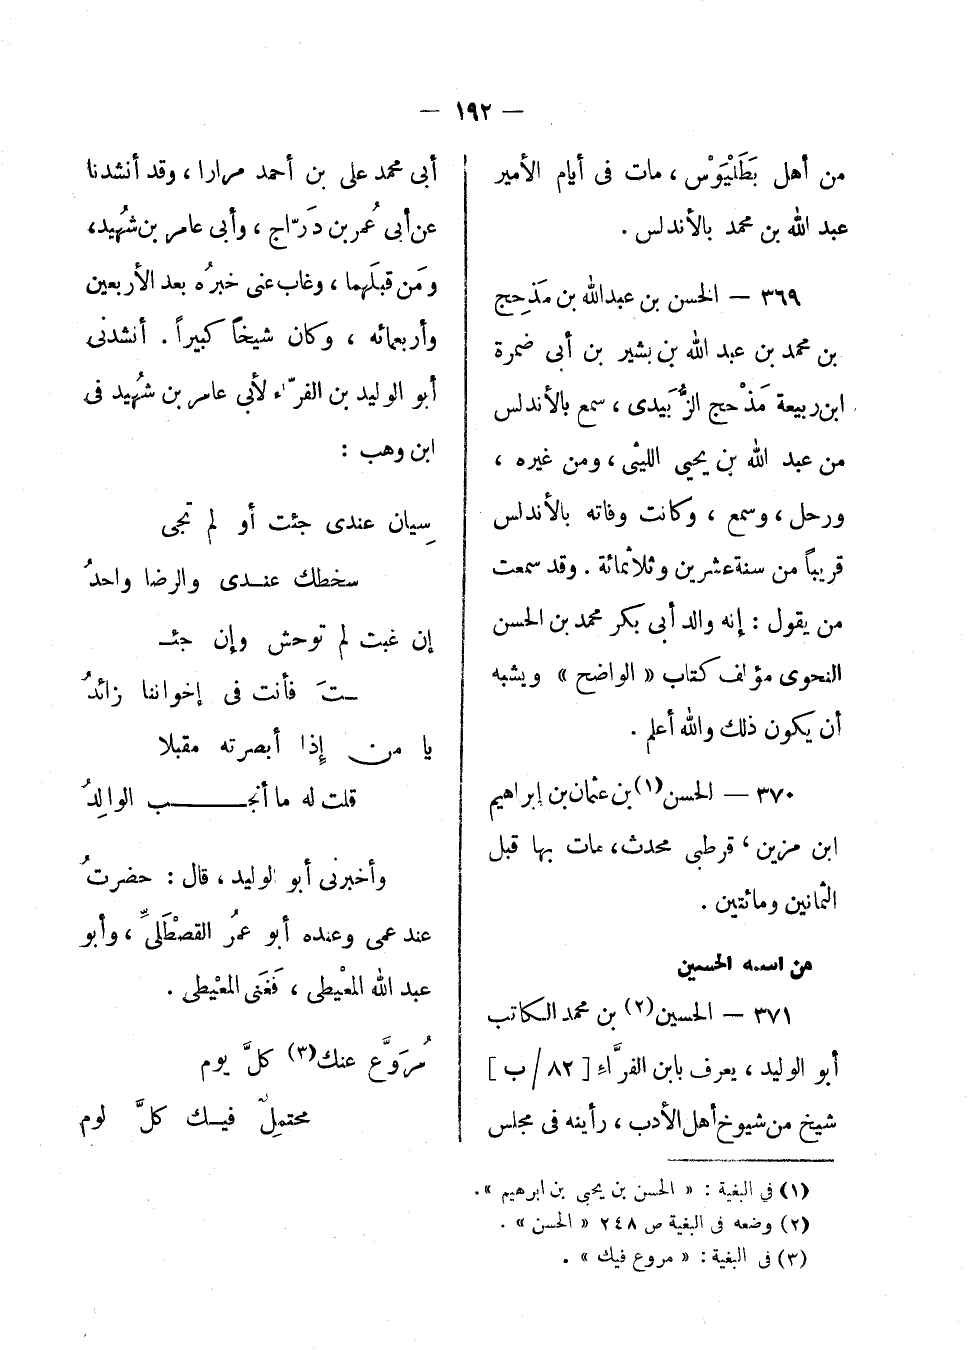 — ١٩٢ —
من أهل بَطَلْيَوْس ، مات فى أيام الأمير
عبد الله بن محمد بالأندلس .
٣٦٩ — الحسن بن عبدالله بن مَذحِج
بن محمد بن عبد الله بن بشير بن أبى ضمرة
ابن ربيعة مَذْحج الزُّبَيدى ، سمع بالأندلس
من عبد الله بن يحيى الليثى ، ومن غيره ،
ورحل ، وسمع ، وكانت وفاته بالأندلس
قريباً من سنة عشرين وثلاثمائة . وقد سمعت
من يقول : إنه والد أبى بكر محمد بن الحسن
النحوى مؤلف كتاب « الواضح » ويشبه
أن يكون ذلك والله أعلم .
٣٧٠ — الحسن(١) بن عثمان بن إبراهيم
ابن مزين ، قرطبى محدث ، مات بها قبل
الثمانين ومائتين .
من اسمه الحسين
٣٧١ — الحسين(٢) بن محمد الكاتب
أبو الوليد ، يعرف بابن الفرَّاء [ ٨٢/ب ]
شيخ من شيوخ أهل الأدب ، رأيته فى مجلس
أبى محمد على بن أحمد مرارا ، وقد أنشدنا
عن أبى عُمر بن دَرّاج ، وأبى عامر بن شُهيد،
ومَن قبلَهما ، وغاب عنى خبرُه بعد الأربعين
وأربعمائه ، وكان شيخاً كبيراً . أنشدنى
أبو الوليد بن الفرّاء لأبى عامر بن شُهيد فى
ابن وهب :
سِيان عندى جئت أو لم تجى
سخطك عندى والرضا واحدُ
إن غبت لم توحش وإن جئـ
ـتَ فأنت فى إخواننا زائدُ
يا من إذا أبصرته مقبلا
قلت له ما أنجب الوالِدُ
وأخبرنى أبو الوليد ، قال : حضرتُ
عند عمى وعنده أبو عمرُ القصْطَلىِّ ، وأبو
عبد الله المعْيطى ، فَغَنى المعْيطى .
مُرَوَّع عنك(٣) كلَّ يوم
محتملٌ فيك كلَّ لوم
(١) في البغية : « الحسن بن يحيى بن ابرهيم ».
(٢) وضعه فى البغية ص ٢٤٨ « الحسن » .
(٣) فى البغية : « مروع فيك » .